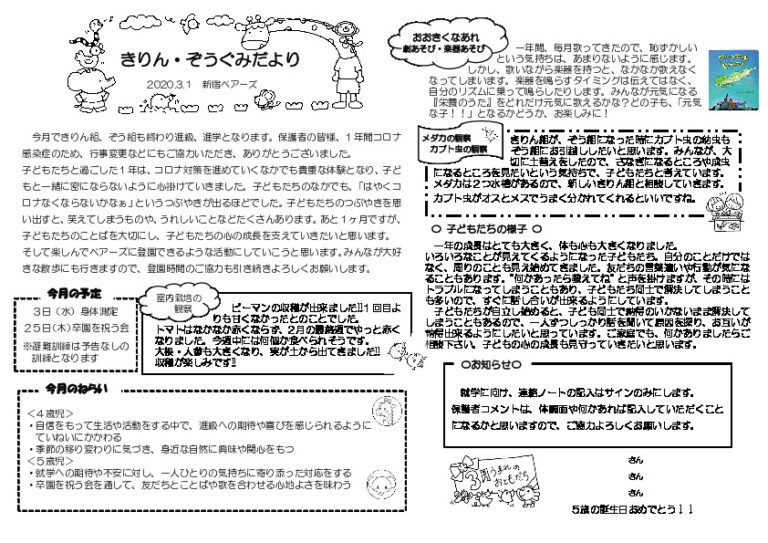 きりん・ぞうぐみだより
2020.3.1 新宿ベアーズ
今月できりん組、ぞう組も終わり進級、進学となります。保護者の皆様、1年間コロナ
感染症のため、行事変更などにもご協力いただき、ありがとうございました。
子どもたちと過ごした1年は、コロナ対策を進めていくなかでも貴重な体験となり、子ど
もと一緒に密にならないように心掛けていきました。子どもたちのなかでも、「はやくコ
ロナなくならないかなぁ」というつぶやきが出るほどでした。子どもたちのつぶやきを思
い出すと、笑えてしまうものや、うれしいことなどたくさんあります。あと1ヶ月ですが、
子どもたちのことばを大切にし、子どもたちの心の成長を支えていきたいと思います。
そして楽しんでベアーズに登園できるような活動にしていこうと思います。みんなが大好
きな散歩にも行きますので、登園時間のご協力も引き続きよろしくお願いします。
今月の予定
3日（水）身体測定
25日（木）卒園を祝う会
※避難訓練は予告なしの
訓練となります
室内栽培の
観察
ピーマンの収穫が出来ました!!1回目よ
りも甘くなかったとのことでした。
トマトはなかなか赤くならず、2月の最終週でやっと赤く
なりました。今週中には何個か食べられそうです。
大根・人参も大きくなり、実が土から出てきました!!
収穫が楽しみです!!
今月のねらい
＜4歳児＞
・自信をもって生活や活動をする中で、進級への期待や喜びを感じられるように
ていねいにかかわる
・季節の移り変わりに気づき、身近な自然に興味や関心をもつ
＜5歳児＞
・就学への期待や不安に対し、一人ひとりの気持ちに寄り添った対応をする
・卒園を祝う会を通して、友だちとことばや歌を合わせる心地よさを味わう
おおきくなあれ
劇あそび・楽器あそび
一年間、毎月歌ってきたので、恥ずかしい
という気持ちは、あまりないように感じます。
しかし、歌いながら楽器を持つと、なかなか歌えなく
なってしまいます。楽器を鳴らすタイミングは伝えてはなく、
自分のリズムに乗って鳴らしたりします。みんなが元気になる
『栄養のうた』をどれだけ元気に歌えるかな？どの子も、「元気
な子！！」となるかどうか、お楽しみに！
メダカの観察
カブト虫の観察
きりん組が、ぞう組になった時にカブト虫の幼虫も
ぞう組にお引越ししたいと思います。みんなが、大
切に土替えをしたので、さなぎになるところや成虫
になるところを見たいという気持ちで、子どもたちと考えています。
メダカは2つ水槽があるので、新しいきりん組と相談していきます。
カブト虫がオスとメスでうまく分かれてくれるといいですね。
○ 子どもたちの様子 ○
一年の成長はとても大きく、体も心も大きくなりました。
いろいろなことが見えてくるようになった子どもたち。自分のことだけでは
なく、周りのことも見え始めてきました。友だちの言葉遣いや行動が気にな
ることもあります。"何かあったら教えてね"と声を掛けますが、その時には
トラブルになってしまうこともあり、子どもたち同士で解決してしまうこと
も多いので、すぐに話し合いが出来るようにしています。
子どもたちが自立し始めると、子ども同士で納得のいかないまま解決して
しまうこともあるので、一人ずつしっかり話を聞いて原因を探り、お互いが
納得出来るようにしたいと思っています。ご家庭でも、何かありましたらご
相談下さい。子どもの心の成長も見守っていきたいと思います。
○お知らせ○
就学に向け、連絡ノートの記入はサインのみにします。
保護者コメントは、体調面や何かあれば記入していただくこと
になるかと思いますので、ご協力よろしくお願いします。
3月うまれの
おともだち
さん
さん
さん
5歳の誕生日おめでとう！！